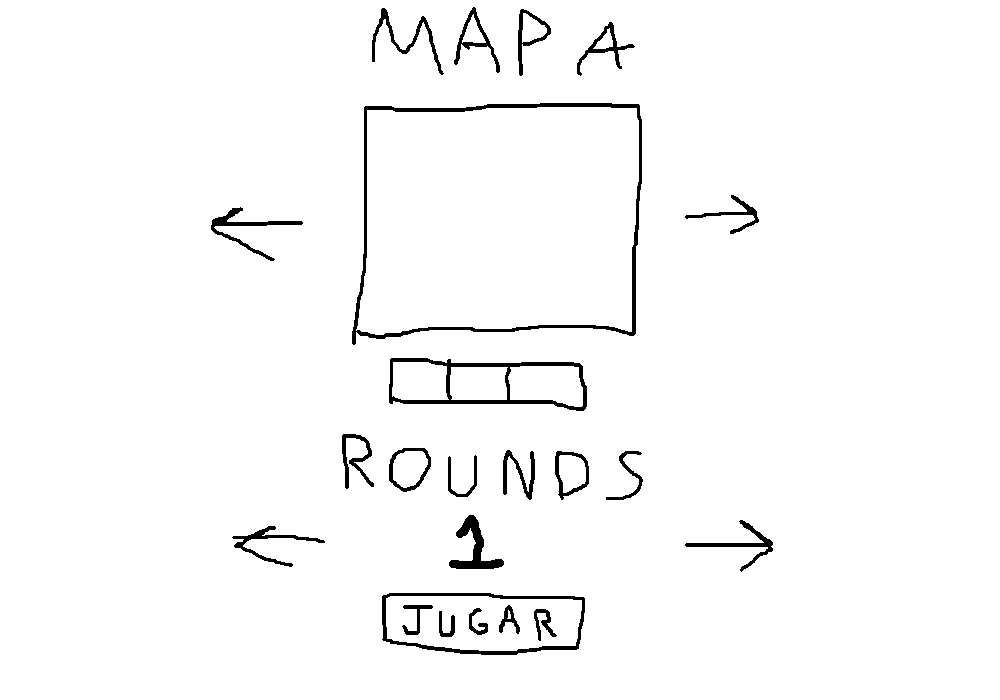 MAPA
ROUNDS
1
JUGAR